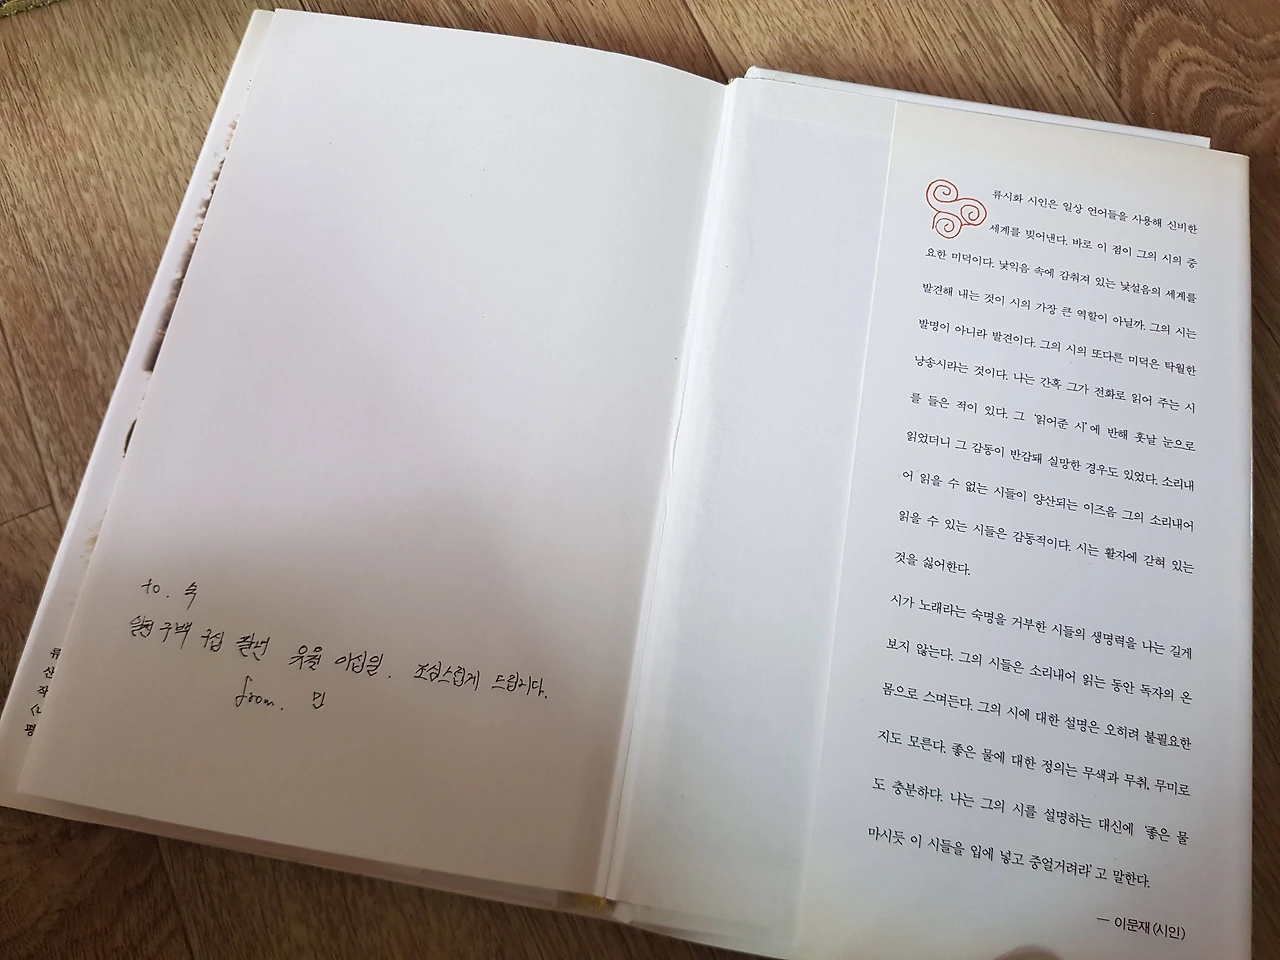 to. 숙
일천 구백 구십 팔년 유월 이십일. 조심스럽게 드립니다.
from. 민
류시화 시인은 일상 언어들을 사용해 신비한
세계를 빚어낸다. 바로 이 점이 그의 시의 중
요한 미덕이다. 낯익음 속에 감춰져 있는 낯설음의 세계를
발견해 내는 것이 시의 가장 큰 역할이 아닐까. 그의 시는
발명이 아니라 발견이다. 그의 시의 또다른 미덕은 탁월한
낭송시라는 것이다. 나는 간혹 그가 전화로 읽어 주는 시
를 들은 적이 있다. 그 '읽어준 시'에 반해 훗날 눈으로
읽었더니 그 감동이 반감돼 실망한 경우도 있었다. 소리내
어 읽을 수 없는 시들이 양산되는 이즈음 그의 소리내어
읽을 수 있는 시들은 감동적이다. 시는 활자에 갇혀 있는
것을 싫어한다.
시가 노래라는 숙명을 거부한 시들의 생명력을 나는 길게
보지 않는다. 그의 시들은 소리내어 읽는 동안 독자의 온
몸으로 스며든다. 그의 시에 대한 설명은 오히려 불필요한
지도 모른다. 좋은 물에 대한 정의는 무색과 무취, 무미로
도 충분하다. 나는 그의 시를 설명하는 대신에 '좋은 물
마시듯 이 시들을 입에 넣고 중얼거려라'고 말한다.
— 이문재(시인)
류
산
작
평